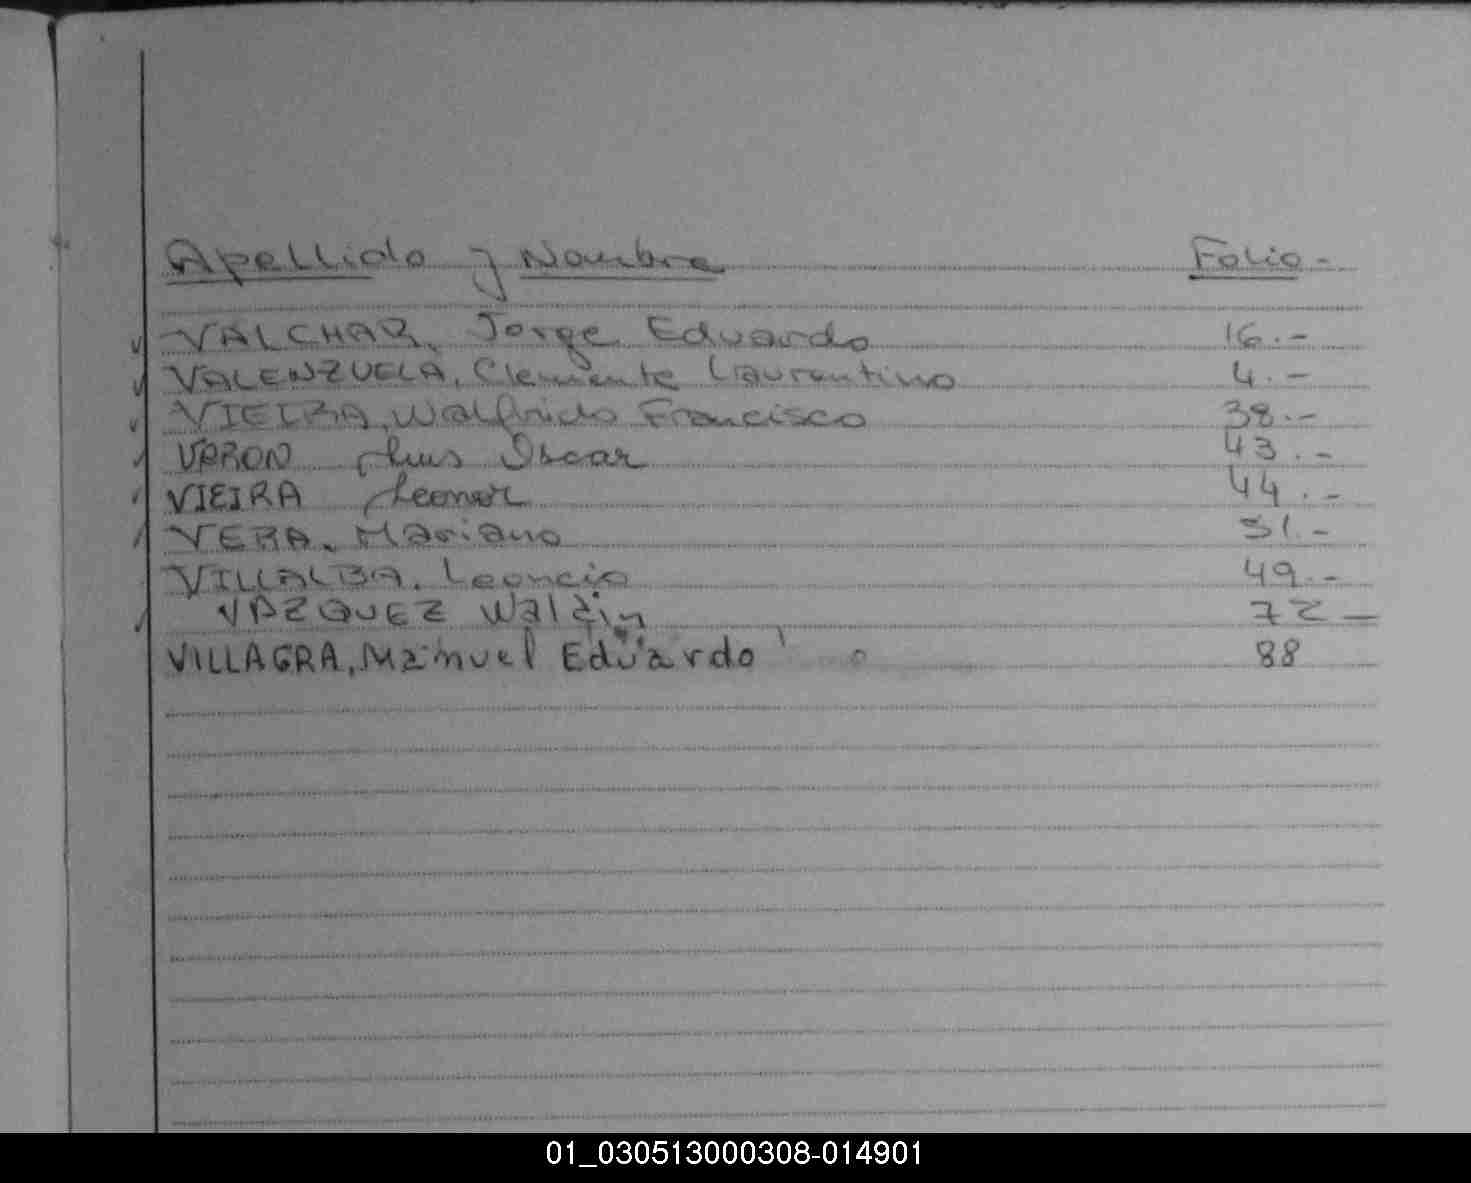 Apellido y Nombre Folio-
VALCHAR, Jorge Eduardo 16.-
VALENZUELA, Clemente Laurentino 4.-
VIEIRA, Walfrido Francisco 38.-
VARON Luis Oscar 43.-
VIEIRA Leonor 44.-
VERA, Mariano 51.-
VILLALBA, Leoncio 49.-
VAZQUEZ Waldin 72-
VILLAGRA, Manuel Eduardo 88
01_030513000308-014901